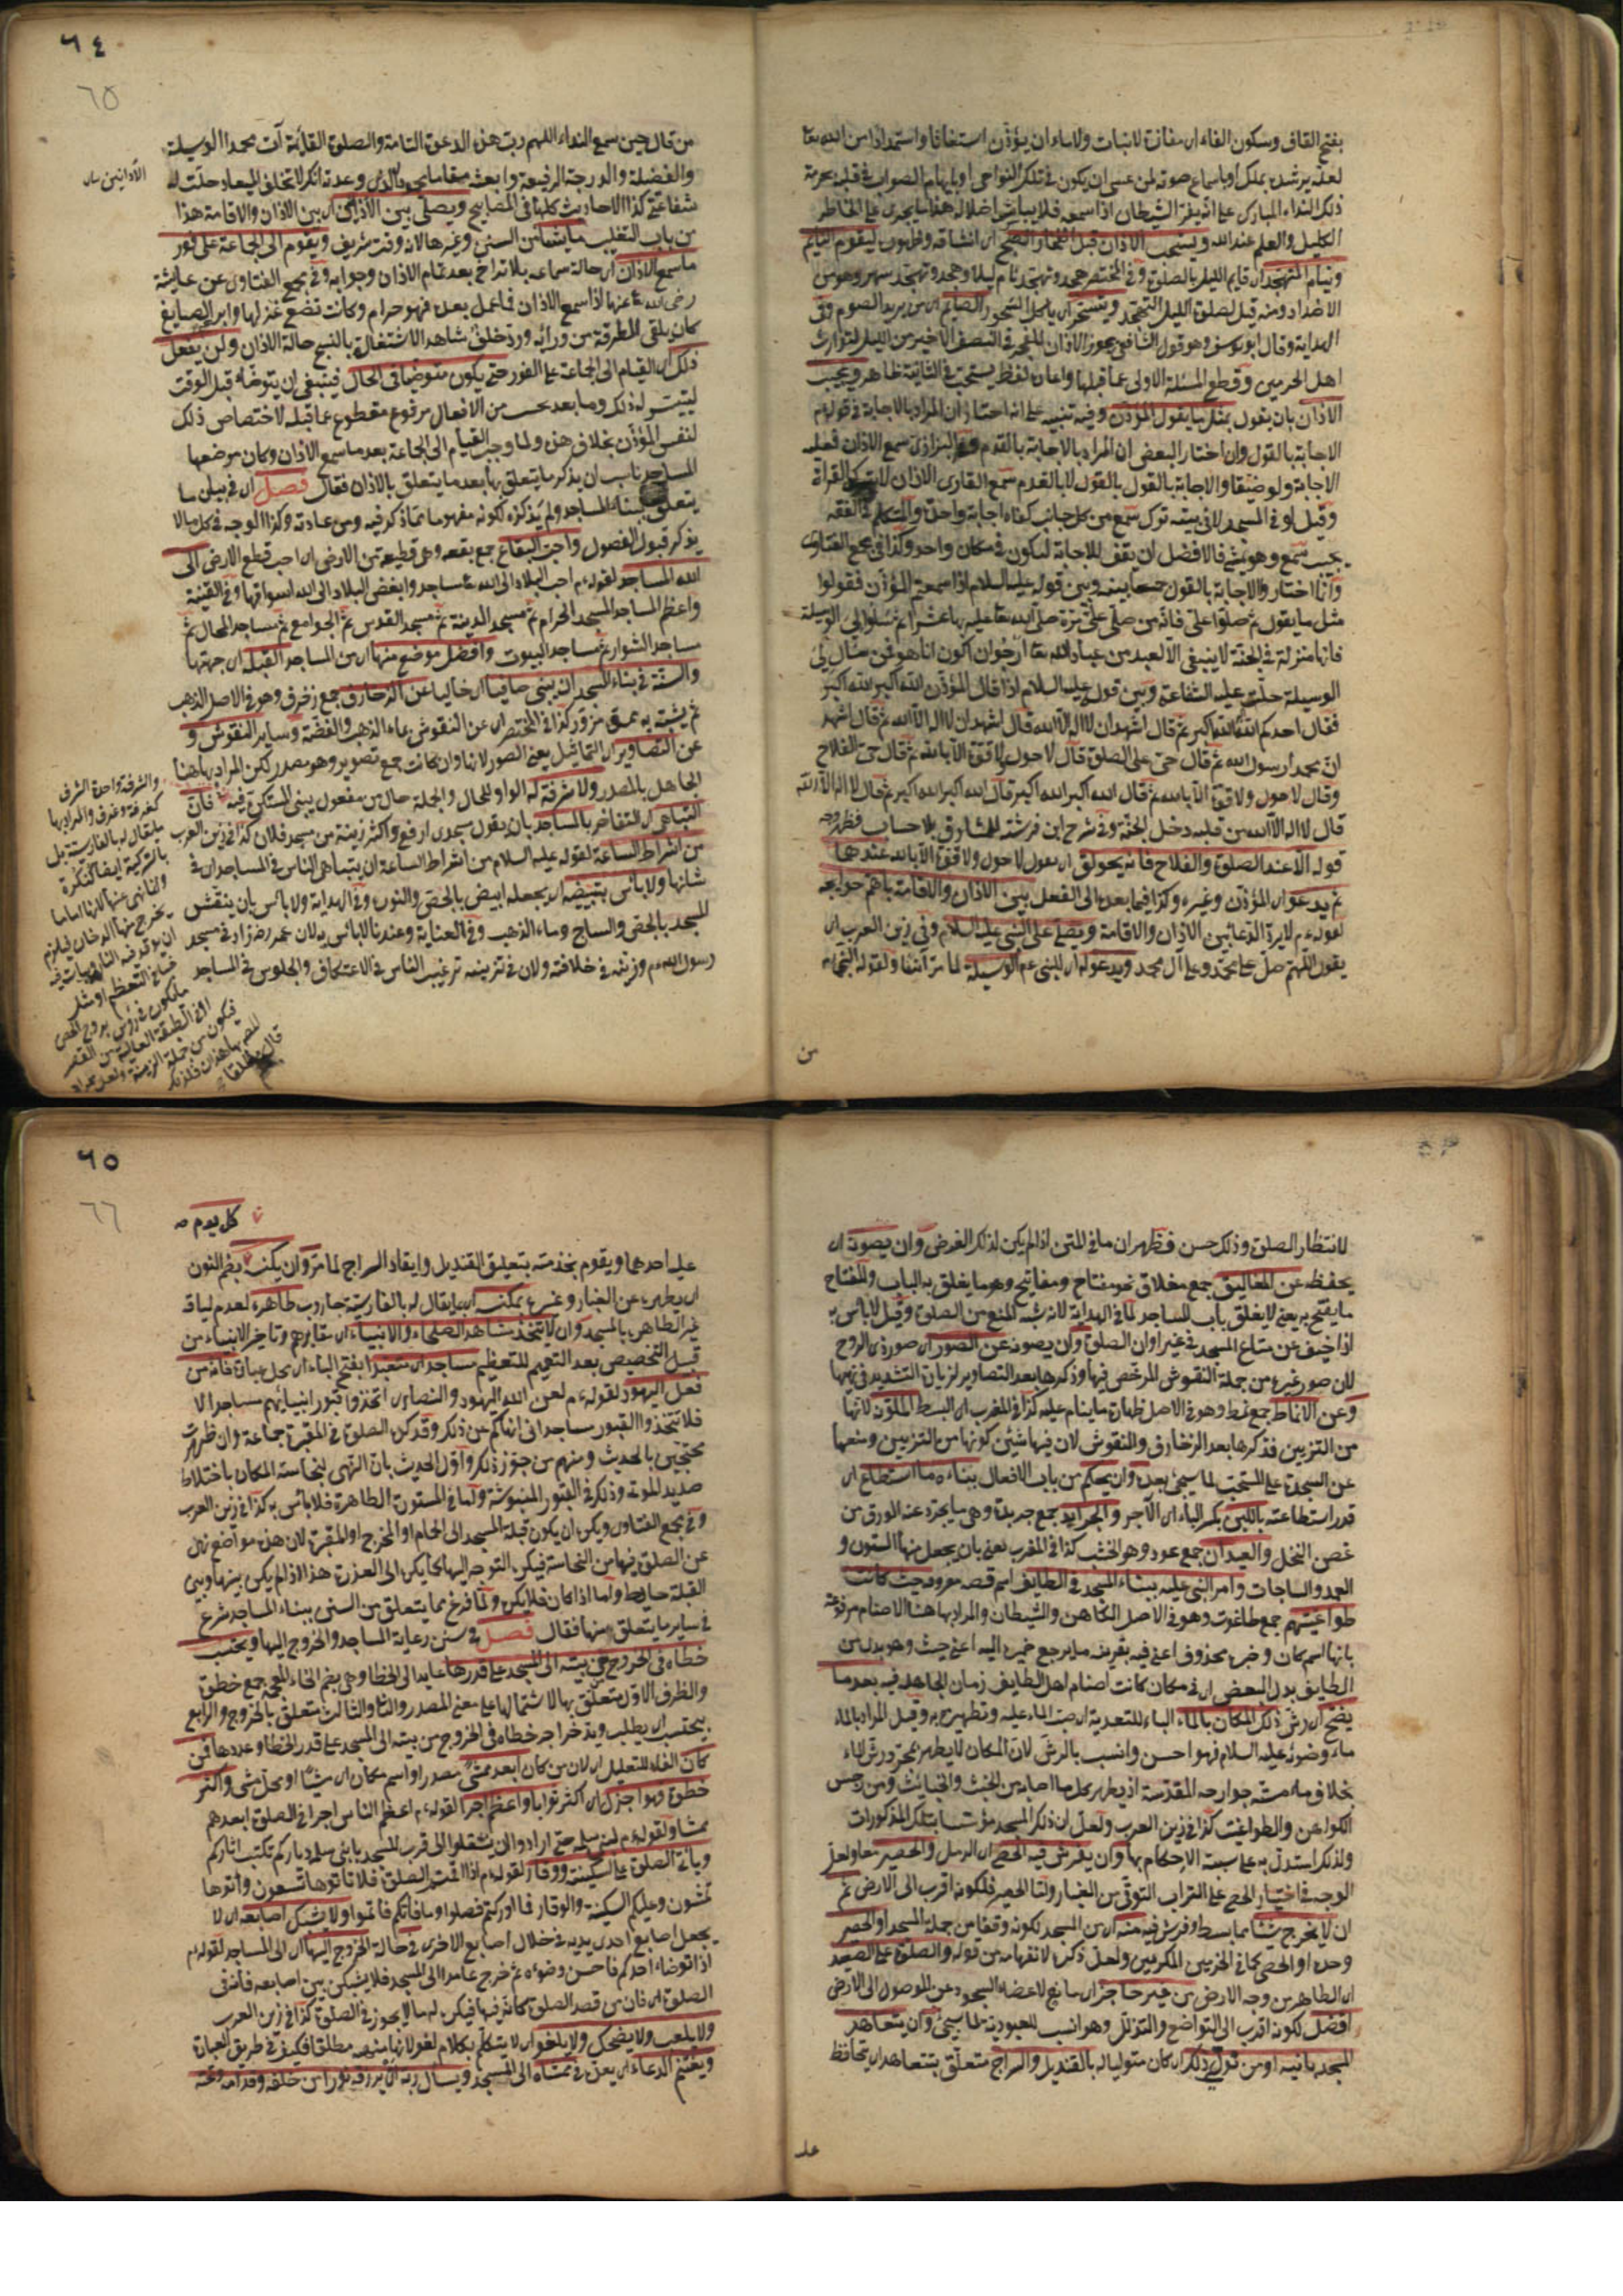 بفتح القاف وسكون الفاء اى مفازة لانبات ولاماء ان يؤذن استغاثا واستمدادا من الله تعا
لعله يرشده بملك او باسماع صوته لمن عسى ان يكون فى تلك النواحى او بالهام الصواب فى قلبه بحرمة
ذلك النداء المبارك على انه يفر الشيطان اذا سمعه فلا يباشر اضلاله هذا ما يجرى على الخاطر
الكليل والعلم عند الله ويستحب الاذان قبل انفجار الصبح اى انشاقه وظهوره ليقوم النايم
وينام المتهجد اى قايم الليل بالصلوة وفى المختصر هجد وتهجد نام ليلا وهجد وتهجد سهر وهو من
الاضداد ومنه قيل لصلوة الليل التهجد ويتسحر اى ياكل السحور الصايم اى من يريد الصوم وفى
الهداية وقال ابو يوسف وهو قول الشافعى يجوز الاذان للفجر فى النصف الاخير من الليل لتوارث
اهل الحرمين وقطع المسئلة الاولى عما قبلها واعاد لفظ يستحب فى الثانية ظاهر ويجيب
الاذان بان يقول بمثل ما يقول المؤذن وفيه تنبيه على انه اختار ان المراد بالاجابة فى قولهم
الاجابة بالقول وان اختار البعض ان المراد بالاجابة بالقدم وفى البزازى سمع الاذان فعليه
الاجابة ولو ضيفا والاجابة بالقول بالقول لا بالقدم سمع القارى الاذان لا يترك القراة
وقيل لو فى المسجد لا فى بيته ترك سمع من كل جانب كفاه اجابة واحدة والمتكلم فى الفقه
يجيب سمع وهو يمشى فالافضل ان يقف للاجابة ليكون فى مكان واحد وكذا فى مجمع الفتاوى
وانما اختار والاجابة بالقول جمعا بينه وبين قوله عليه السلام اذا سمعتم المؤذن فقولوا
مثل ما يقول ثم صلوا على فانه من صلى على مرة صلى الله تعا عليه بها عشرا ثم سلوا لى الوسيلة
فانها منزلة فى الجنة لا ينبغى الا لعبد من عباد الله تعا ارجو ان اكون انا هو فمن سال لى
الوسيلة حلت عليه الشفاعة وبين قوله عليه السلام اذا قال المؤذن الله اكبر الله اكبر
فقال احدكم الله اكبر الله اكبر ثم قال اشهد ان لا اله الا الله قال اشهد ان لا اله الا الله ثم قال اشهد
ان محمدا رسول الله ثم قال حى على الصلوة قال لا حول ولا قوة الا بالله ثم قال حى الفلاح
وقال لا حول ولا قوة الا بالله ثم قال الله اكبر الله اكبر قال الله اكبر الله اكبر ثم قال لا اله الا الله
قال لا اله الا الله من قلبه دخل الجنة وفى شرح ابن فرشته للمشارق بلا حساب فظهر وجه
قوله الا عند الصلوة والفلاح فانه يحولق اى يقول لا حول ولا قوة الا بالله عندهما
ثم يدعو اى المؤذن وغيره وكذا فيما بعده الى الفعل بين الاذان والاقامة باهم حوايجه
لقوله م لا يرد الدعا بين الاذان والاقامة ويصلى على النبى عليه السلام وفى زين العرب اى
يقول اللهم صل على محمد وعلى آل محمد ويدعو له اى للنبى عم الوسيلة لما مر آنفا ولقوله النبى م
من
٦٤
65
من قال حين سمع النداء اللهم رب هذه الدعوة التامة والصلوة القايمة آت محمدا الوسيلة
والفضيلة والدرجة الرفيعة وابعثه مقاما محمودا الذى وعدته انك لا تخلف الميعاد حلت له
شفاعتى كذا الاحاديث كلها فى المصابيح ويصلى بين الاذانين اى بين الاذان والاقامة هذا
من باب التغليب ما يشا من السنن وغيرها لانه وقت شريف ويقوم الى الجماعة على فور
ما سمع الاذان اى حالة سماعه بلا تراخ بعد تمام الاذان وجوابه وفى مجمع الفتاوى عن عايشة
رضى الله عنها اذا سمع الاذان فما عمل بعده فهو حرام وكانت تضع غزلها وابراهيم الصايغ
كان يلقى المطرقة من ورائه ورد خلف شاهدا لاشتغاله بالنسج حالة الاذان ولن يفعل
ذلك اى القيام الى الجماعة على الفور حتى يكون متوضئا فى الحال فينبغى ان يتوضاء قبل الوقت
ليتيسر له ذلك وما بعد يحسب من الافعال مرفوع مقطوع عما قبله لاختصاص ذلك
لنفس المؤذن بخلاف هذه ولما وجب القيام الى الجماعة بعد ما سمع الاذان وكان موضعها
المساجد ناسب ان يذكر ما يتعلق بها بعد ما يتعلق بالاذان فقال فصل اى فى بيان ما
يتعلق ببناء المساجد ولم يذكره لكونه مفهوما مما ذكر فيه ومن عادته وكذا الوجه فى كل ما لا
يذكر قبول الفصول واحب البقاع جمع بقعه وهى قطيعة من الارض اى احب قطع الارض الى
الله المساجد لقوله م احب البلاد الى الله تعا مساجد وابغض البلاد الى الله اسواقها وفى القنية
واعظم المساجد المسجد الحرام ثم مسجد المدينة ثم مسجد القدس ثم الجوامع ثم مساجد المحال ثم
مساجد الشوارع ثم مساجد البيوت وافضل موضع منها اى من المساجد القبلة اى جهتها
والسنة فى بناء المسجد ان يبنى صافيا اى خاليا عن الزخارف جمع زخرف وهو فى الاصل الذهب
ثم يشبه به مموه مزور كذا فى المختصر اى عن النقوش بماء الذهب والفضة وساير النقوش و
عن التصاوير اى التماثيل يعنى الصور لانها وان كانت جمع تصوير وهو مصدر لكن المراد بها هنا
الحاصل بالمصدر ولا شرفة له الواو للحال والجملة حال من مفعول يبنى المستكن فيه فان
التباهى اى التفاخر بالمساجد بان يقول مسجدى ارفع واكثر زينة من مسجد فلان كذا فى زين العرب
من اشراط الساعة لقوله عليه السلام من اشراط الساعة ان يتباهى الناس فى المساجد اى فى
شانها ولا باس بتبييضه اى بجعله ابيض بالجص والنوره وفى الهداية ولا باس بان ينقش
المسجد بالجص والساج وماء الذهب وفى العناية وعندنا لا باس به لان عمر رضه زاد فى مسجد
رسول الله م وزينه فى خلافته ولان فى تزيينه ترغيب الناس فى الاعتكاف والجلوس فى المساجد
الاذانين
والشرفة واحدة الشرف
كغرفة وغرف والمراد بها
ما يقال له بالفارسية
لانتظار الصلوة وذلك حسن فظهر ان ما فى المتن اذا لم يكن لذلك الغرض وان يصونه اى
يحفظه عن المغاليق جمع مغلاق نحو مفتاح ومفاتيح وهو ما يغلق به الباب والمفتاح
ما يفتح به يعنى لا يغلق باب المساجد لما فى الهداية لانه شبه المنع من الصلوة وقيل لا باس به
اذا خيف عن متاع المسجد فى غير اوان الصلوة وان يصونه عن الصور اى صورة ذى الروح
لان صور غيره من جملة النقوش المرخص فيها وذكرها بعد التصاوير لزيادة التشديد فى نهيها
وعن الانماط جمع نمط وهو فى الاصل ظهارة ما ينام عليه كذا فى المغرب اى البسط الملون لانها
من التزيين فذكرها بعد الزخارف والنقوش لان فيها شيئين كونها من التزيين ومنعها
عن السجدة على المستحب لما سيجئ بعده وان يحكم من باب الافعال بناءه ما استطاع اى
قدر استطاعته باللبن بكسر الباء اى الآجر والجرايد جمع جريدة وهى ما يجرد عنه الورق من
غصن النخل والعيدان جمع عود وهو الخشب كذا فى المغرب يعنى بان يجعل منها الستون و
العمد والساجات وامر النبى عليه ببناء المسجد فى الطايف اسم قصبه معروفه حيث كانت
طواغيتهم جمع طاغوت وهو فى الاصل الكاهن والشيطان والمراد بها هنا الاصنام مرفوعة
بانها اسم كان وخبره محذوف اعنى فيه بقرينة ما يرجع ضميره اليه اعنى حيث وهو بدل من
الطايف بدل البعض اى فى مكان كانت اصنام اهل الطايف زمان الجاهلية فيه بعد ما
ينضح اى رش ذلك المكان بالماء الباء للتعدية اى صب الماء عليه وتطهيره به وقيل المراد بالماء
ماء وضوئه عليه السلام فهو احسن وانسب بالرش لان المكان لا يطهر بمجرد رش الماء
بخلاف ماء مسته جوارحه المقدسة اذ يطهر كل ما اصابه من الخبث والخبائث ومن رجس
الكواهن والطواغيت كذا فى زين العرب ولعل ان ذلك المسجد مؤسسا بتلك المذكورات
ولذلك استدل به على سنية الاحكام بها وان يفرش فيه الحصى اى الرمل والحصير معا ولعل
الوجه فى اختيار الحصى على التراب التوقى من الغبار واما الحصير فلكونه اقرب الى الارض ثم
ان لا يخرج شيئا مما بسط او فرش فيه منه اى من المسجد لكونه وقفا من جملة المسجد او الحصير
وحده او الحصى كما فى الحرمين المكرمين ولعل ذكره لانفهامه من قوله والصلوة على الصعيد
اى الطاهر من وجه الارض من غير حاجز اى مانع لاعضاء السجود عن الوصول الى الارض
افضل لكونه اقرب الى التواضع والتذلل وهو انسب للعبودية لما سيجئ وان يتعاهد
المسجد بانيه او من تولى ذلك اى كان متوليا له بالقنديل والسراج متعلق بتعاهد اى يحافظ
على
٦٥
66
كل يوم
على احدهما ويقوم بخدمته بتعليق القنديل وايقاد السراج لما مر وان يكنسه بضم النون
اى يطهره عن الغبار وغيره بمكنسة اى ما يقال له بالفارسية جاروب طاهرة لعدم لياقة
غير الطاهر بالمسجد وان لا يتخذ مشاهد الصلحاء والانبياء اى مقابرهم وتاخير الانبياء من
قبيل التخصيص بعد التعميم للتعظيم مساجد اى متعبدا بفتح الباء اى محل عبادة فانه من
فعل اليهود لقوله م لعن الله اليهود والنصارى اتخذوا قبور انبيائهم مساجد الا
فلا تتخذوا القبور مساجد انى انهاكم عن ذلك وقد كره الصلوة فى المقبرة جماعة وان طهرت
محتجين بالحديث ومنهم من جوز ذلك واول الحديث بان النهى لنجاسة المكان باختلاط
صديد الموتى وذلك فى القبور المنبوشة واما فى المستوية الطاهرة فلا باس به كذا فى زين العرب
وفى مجمع الفتاوى ويكره ان يكون قبلة المسجد الى الحمام او المخرج او المقبرة لان هذه مواضع نهى
عن الصلوة فيها من النجاسة فيكره التوجه اليها كما يكره الى العذرة هذا اذا لم يكن بينها وبين
القبلة حايط واما اذا كان فلا يكره ولما فرغ مما يتعلق من السنن ببناء المساجد شرع
فى ساير ما يتعلق منها فقال فصل فى سنن رعاية المساجد والخروج اليها ويحتسب
خطاه فى الخروج من بيته الى المسجد على قدرها عايد الى الخطا وهى بضم الخاء المعجمة جمع خطوة
والظرف الاول متعلق بها لاشتمالها على معنى المصدر والثانى والثالث متعلق بالخروج والرابع
بيحتسب اى يطلب ويدخر اجر خطاه فى الخروج من بيته الى المسجد على قدر الخطا وعددها فمن
كان الفاء للتعليل اى لان من كان ابعد ممشى مصدر او اسم مكان اى مشيا او محل مشى واكثر
خطوة فهو اجزل اى اكثر ثوابا واعظم اجرا لقوله م اعظم الناس اجرا فى الصلوة ابعدهم
ممشا ولقوله م لبنى سلمة حتى ارادوا ان ينتقلوا الى قرب المسجد يا بنى سلمة دياركم تكتب آثاركم
وياتى الصلوة على السكينة ووقار لقوله م اذا اقيمت الصلوة فلا تاتوها تسعون واتوها
تمشون وعليكم السكينة والوقار فما ادركتم فصلوا وما فاتكم فاتموا ولا يشبك اصابعه اى لا
يجعل اصابع احدى يديه فى خلال اصابع الاخرى فى حالة الخروج اليها اى الى المساجد لقوله م
اذا توضاء احدكم فاحسن وضوءه ثم خرج عامدا الى المسجد فلا يشبكن بين اصابعه فانه فى
الصلوة اى فان من قصد الصلوة كانه فيها فيكره له ما لا يجوز فى الصلوة كذا فى زين العرب
ولا يلعب ولا يضحك ولا يلغو اى لا يتكلم بكلام لغو لانها منهية مطلقا فكيف فى طريق العبادة
ويغتنم الدعاء اى يعده فى ممشاه الى المسجد ويسال ربه ان يرزقه نورا من خلفه وقدامه وعنه